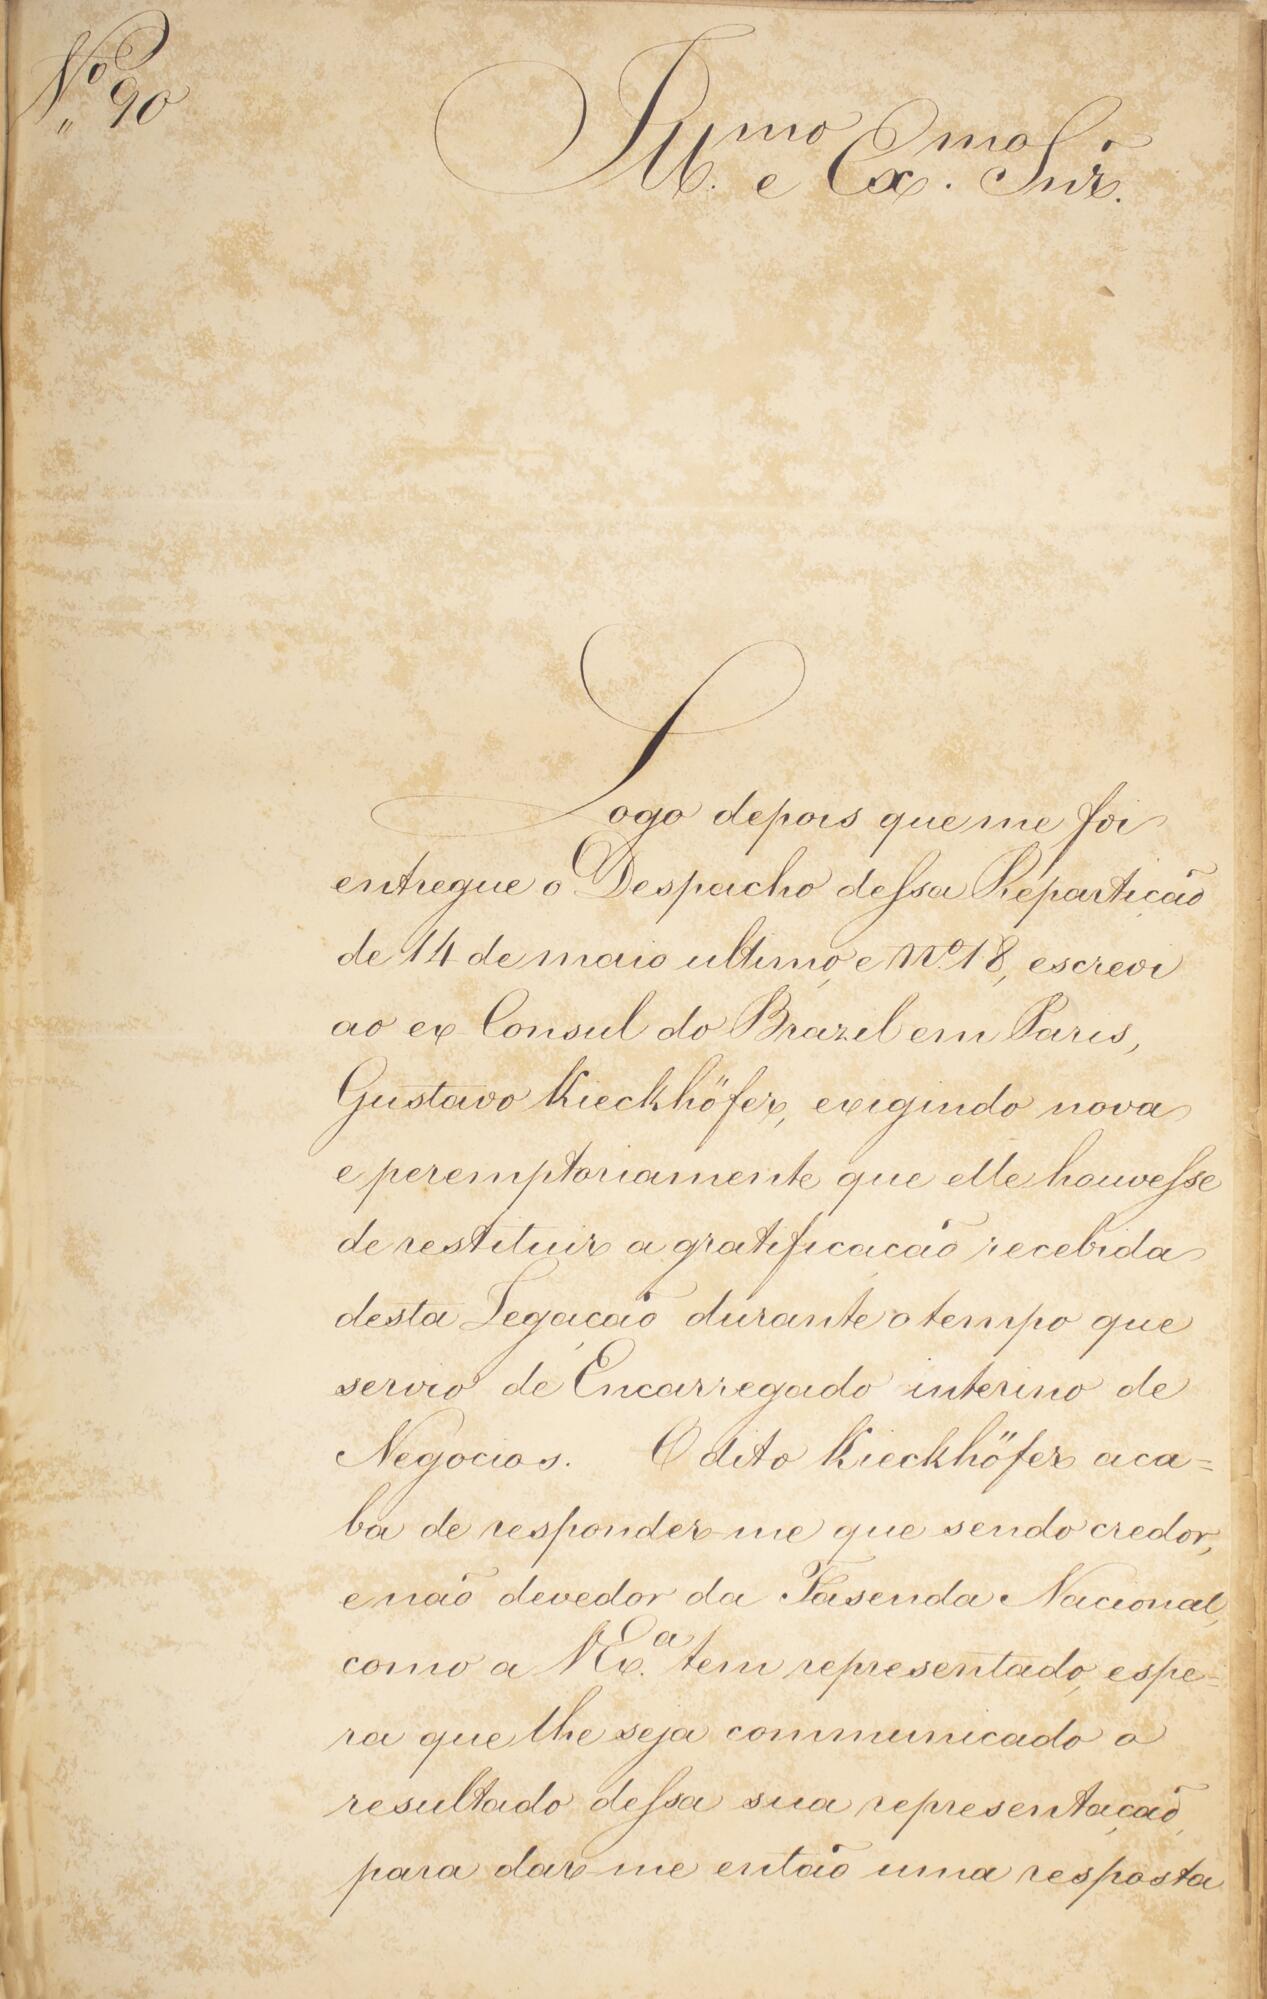 Nº 90
Illmo e Exmo Snr.
Logo depois que me foi
entregue o Despacho dessa Repartição
de 14 de maio ultimo, e Nº 18, escrevi
ao ex Consul do Brazil em Paris,
Gustavo Kieckhöfer, exigindo nova
e peremptoriamente que elle houvesse
de restituir a gratificação recebida
desta Legação durante o tempo que
servio de Encarregado interino de
Negocios. O dito Kieckhöfer aca=
ba de responder-me que sendo credor,
e não devedor da Fasenda Nacional,
como a VExª. tem representado, espe=
ra que lhe seja communicado o
resultado dessa sua representação,
para dar-me então uma resposta